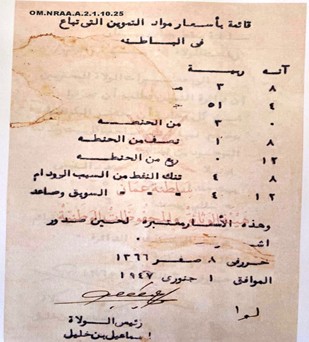 OM.NRAA.A.2.1.10.25
قائمة بأسعار مواد التموين التى تباع
فى الباطنه
آنه ربية
٨ ٣
٤ ٥١
٠ ٣ من الحنطه
٨ ١ نصف من الحنطه
١٢ ٠ ربع من الحنطه
٨ ٤ تنك النفط من السيب الى ودام
١٢ ٤ " " " السويق وصاعد
وهذه الأسعار معتبرة لحين صدور
حرر فى ٨ صفر ١٣٦٦
الموافق ١ جنورى ١٩٤٧
رئيس الولاة
إسماعيل بن خليل